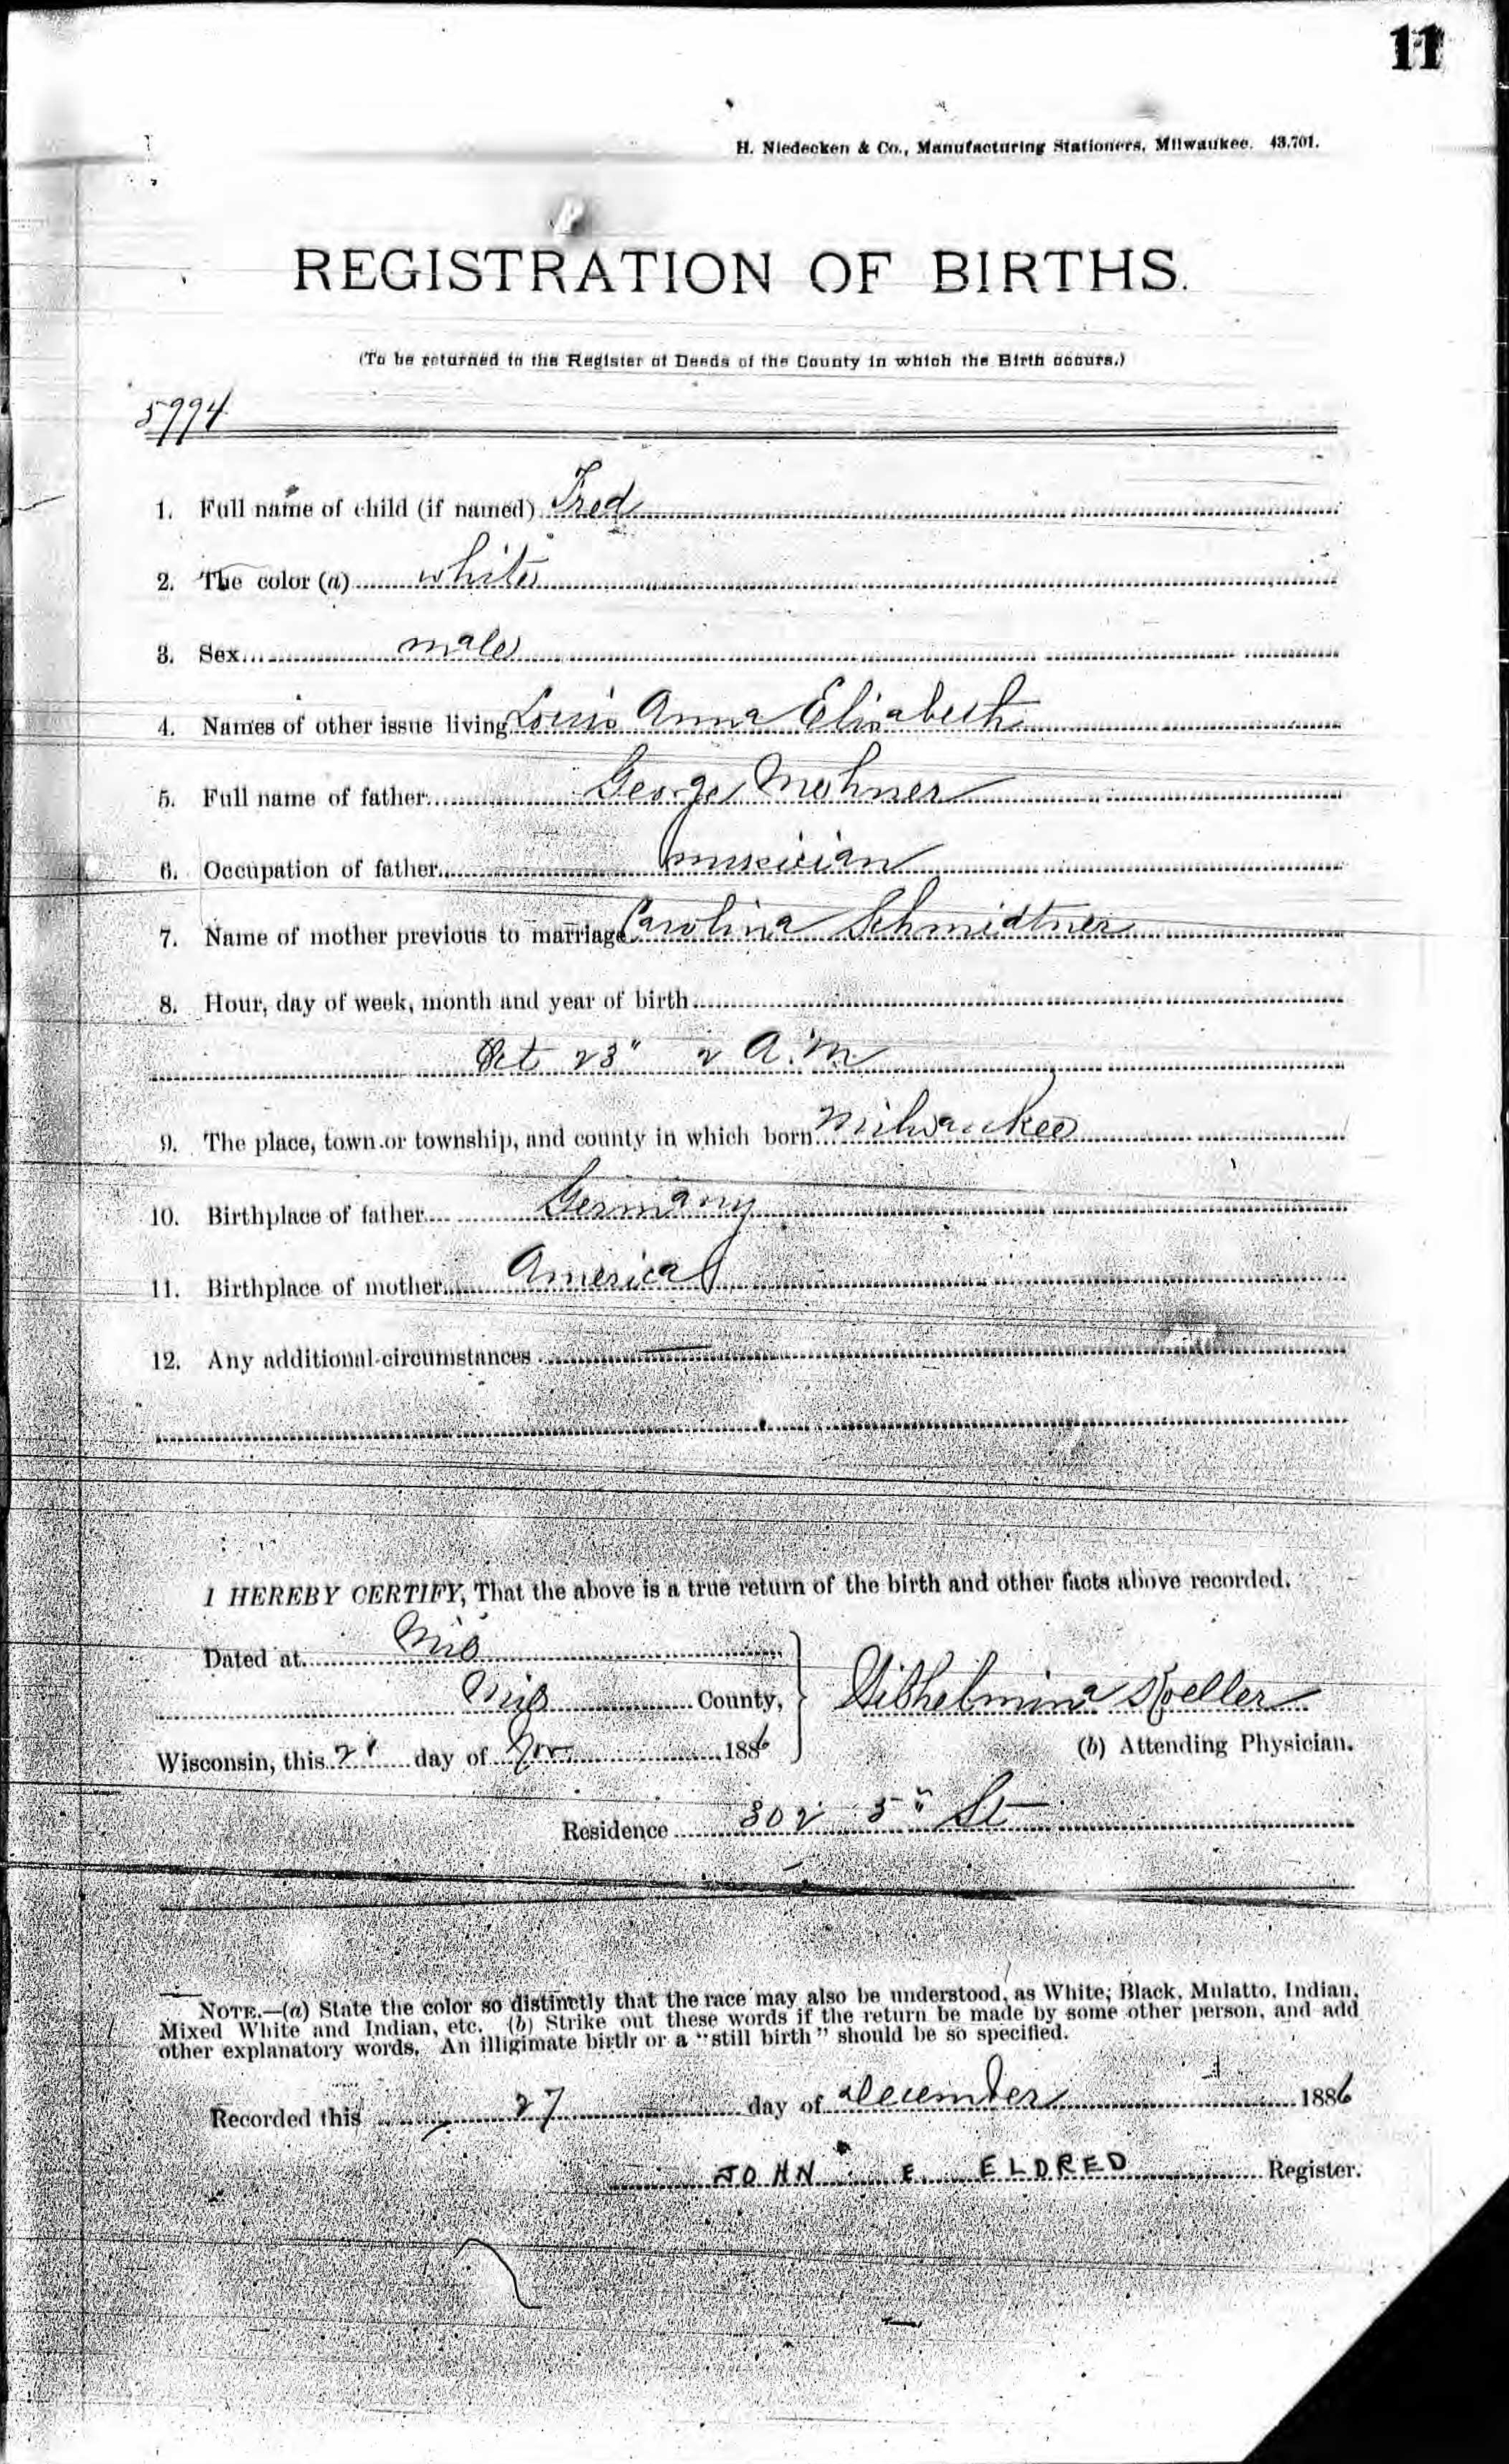 11
H. Niedecken & Co., Manufacturing Stationers, Milwaukee. 43,701.
REGISTRATION OF BIRTHS.
(To be returned to the Register of Deeds of the County in which the Birth occurs.)
5994
1. Full name of child (if named) Fred
2. The color (a) white
3. Sex male
4. Names of other issue living Louis Anna Elisabeth
5. Full name of father George
6. Occupation of father musician
7. Name of mother previous to marriage Carolina Schmidtner
8. Hour, day of week, month and year of birth
Oct 23" 2 A.M
9. The place, town or township, and county in which born Milwaukee
10. Birthplace of father Germany
11. Birthplace of mother America
12. Any additional circumstances
I HEREBY CERTIFY, That the above is a true return of the birth and other facts above recorded.
Dated at Mil
Mil County,
Wilhelmina
Wisconsin, this day of Nov 1886
(b) Attending Physician.
Residence 802 5" St
NOTE.—(a) State the color so distinctly that the race may also be understood, as White, Black, Mulatto, Indian,
Mixed White and Indian, etc. (b) Strike out these words if the return be made by some other person, and add
other explanatory words. An illigimate birth or a "still birth" should be so specified.
Recorded this 27 day of December 1886
JOHN E. ELDRED Register.